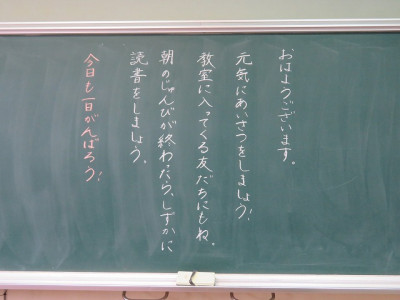 おはようございます。
元気にあいさつをしましょう！
教室に入ってくる友だちにもね。
朝のじゅんびが終わったら、しずかに
読書をしましょう。
今日も一日がんばろう！